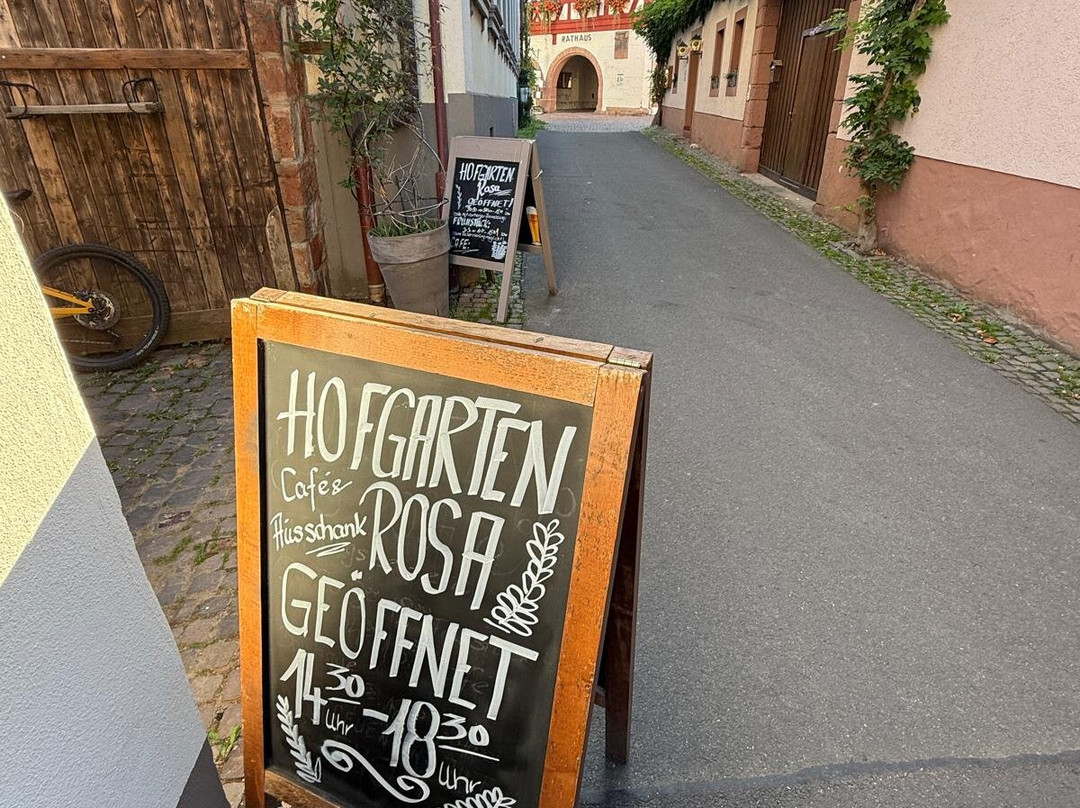 RATHAUS
HOFGARTEN
Rosa
GEÖFFNET!
FRÜHSTÜCK:
CAFE:
HOFGARTEN
Café &
Ausschank
ROSA
GEÖFFNET
14 30 Uhr - 18 30 Uhr